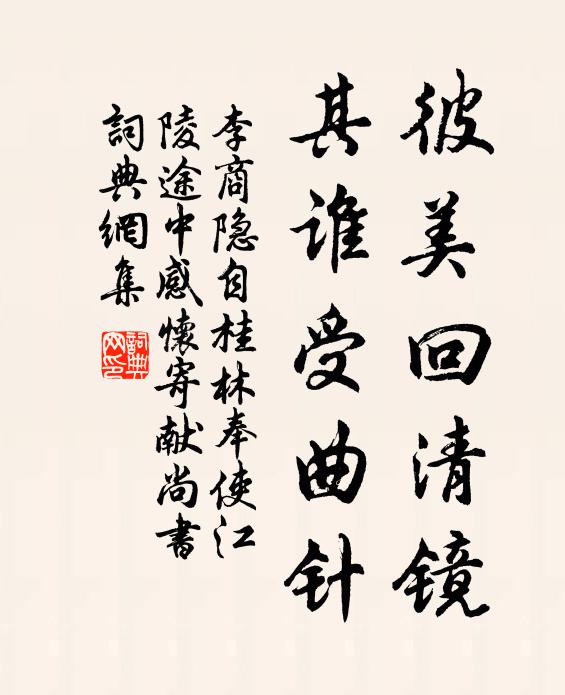 彼美回清镜
其谁受曲针
李商隐自桂林奉使江
陵途中感懷寄献尚書
詞典網集
詞典网印